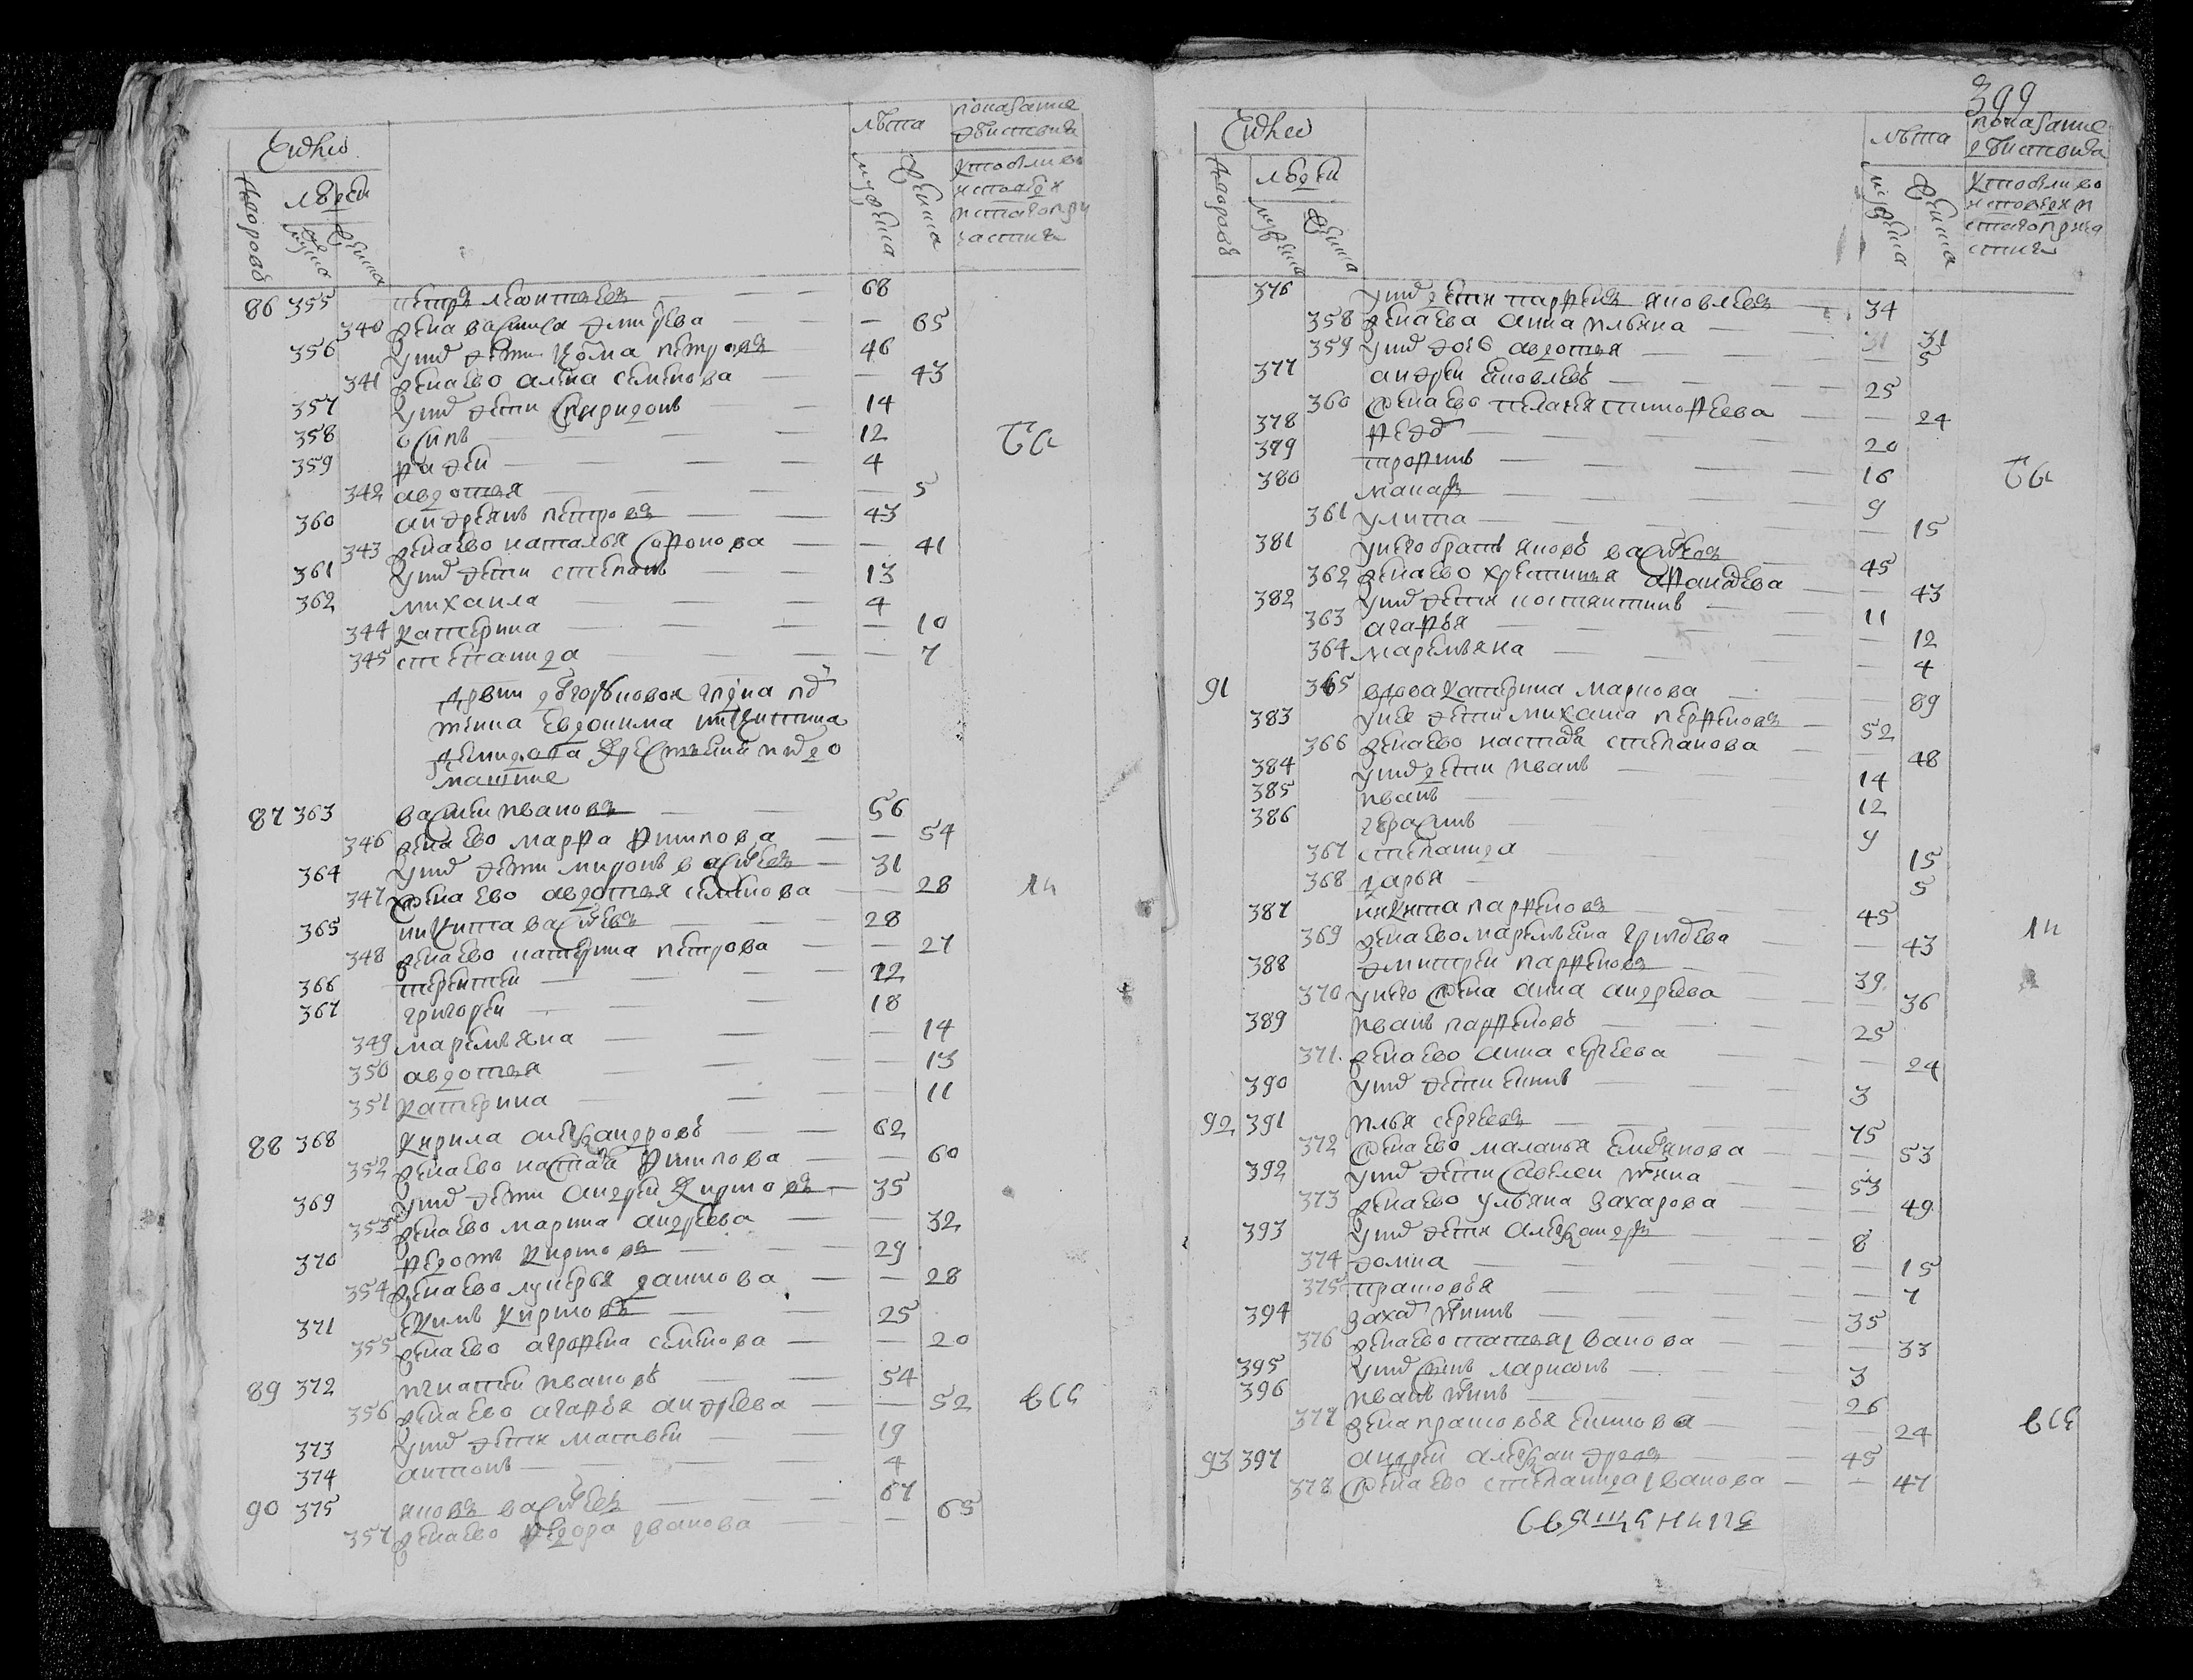 Число
дворовъ
людей
мужеска
женска
лѣта
мужеска
женска
показание
действа
кто были во
исповеди
и стаго при
частия
86 355 петръ леонтьевъ — 68
340 жена василиса — 65
356 У них дети козма петровъ — 46
341 жена ево алена семенова — 43
357 У них дети спиридонъ — 14
358 осипъ — 12
359 фадей — 4
342 авдотья — 5
360 андреянъ петровъ — 43
343 жена ево наталья сафонова — 41
361 У них дети степанъ — 13
362 михаила — 4
344 катерина — 10
345 степанида — 7
87 363 василей ивановъ — 56
346 жена ево марфа филипова — 54
364 У них дети миронъ васильевъ — 31
347 жена ево авдотья семенова — 28
365 никита васильевъ — 28
348 жена ево катерина петрова — 27
366 терентей — 22
367 григорей — 18
349 маремьяна — 14
350 авдотья — 13
351 катерина — 11
88 368 кирила александровъ — 62
352 жена ево настасья филипова — 60
369 У них дети андрей кириловъ — 35
353 жена ево марина андреева — 32
370 федотъ кириловъ — 29
354 жена ево лукерья данилова — 28
371 екимъ кириловъ — 25
355 жена ево агрофена семенова — 20
89 372 игнатей ивановъ — 54
356 жена ево агафья андреева — 52
373 У них дети матвей — 19
374 антонъ — 4
90 375 яковъ васильевъ — 67
357 жена ево федора иванова — 65
399
Число
дворовъ
людей
мужеска
женска
лѣта
мужеска
женска
показание
действа
кто были во
исповеди и
стаго прича
стия
376 У них дети парфенъ яковлевъ — 34
358 жена ева анна ильина — 31
359 У них дочь авдотья — 5
377 андрей яковлевъ — 25
360 жена ево пелагея тимофеева — 24
378 федоръ — 20
379 трофимъ — 16
380 макаръ — 9
361 улита — 15
381 У него братъ яковъ васильевъ — 45
362 жена ево хрестинья афанасьева — 43
382 У них дети костянтинъ — 11
363 агафья — 12
364 маремьяна — 4
91 365 вдова катерина маркова — 89
383 У нее дети михаила парфеновъ — 52
366 жена ево настасья степанова — 48
384 У них дети иванъ — 14
385 иванъ — 12
386 герасимъ — 9
367 степанида — 15
368 дарья — 5
387 никита парфеновъ — 45
369 жена ево маремьяна григорьева — 43
388 дмитрей парфеновъ — 39
370 У него жена анна андреева — 36
389 иванъ парфеновъ — 25
371 жена ево анна сергеева — 24
390 У них дети екимъ — 3
92 391 илья сергеевъ — 75
372 жена ево маланья емельянова — 53
392 У них дети савелей ильинъ — 53
373 жена ево ульяна захарова — 49
393 У них дети александръ — 8
374 домна — 15
375 прасковья — 7
394 захаръ ильинъ — 35
376 жена ево татьяна иванова — 33
395 У них сынъ ларионъ — 3
396 иванъ ильинъ — 26
377 жена прасковья екимова — 24
93 397 андрей александровъ — 45
378 жена ево степанида иванова — 47